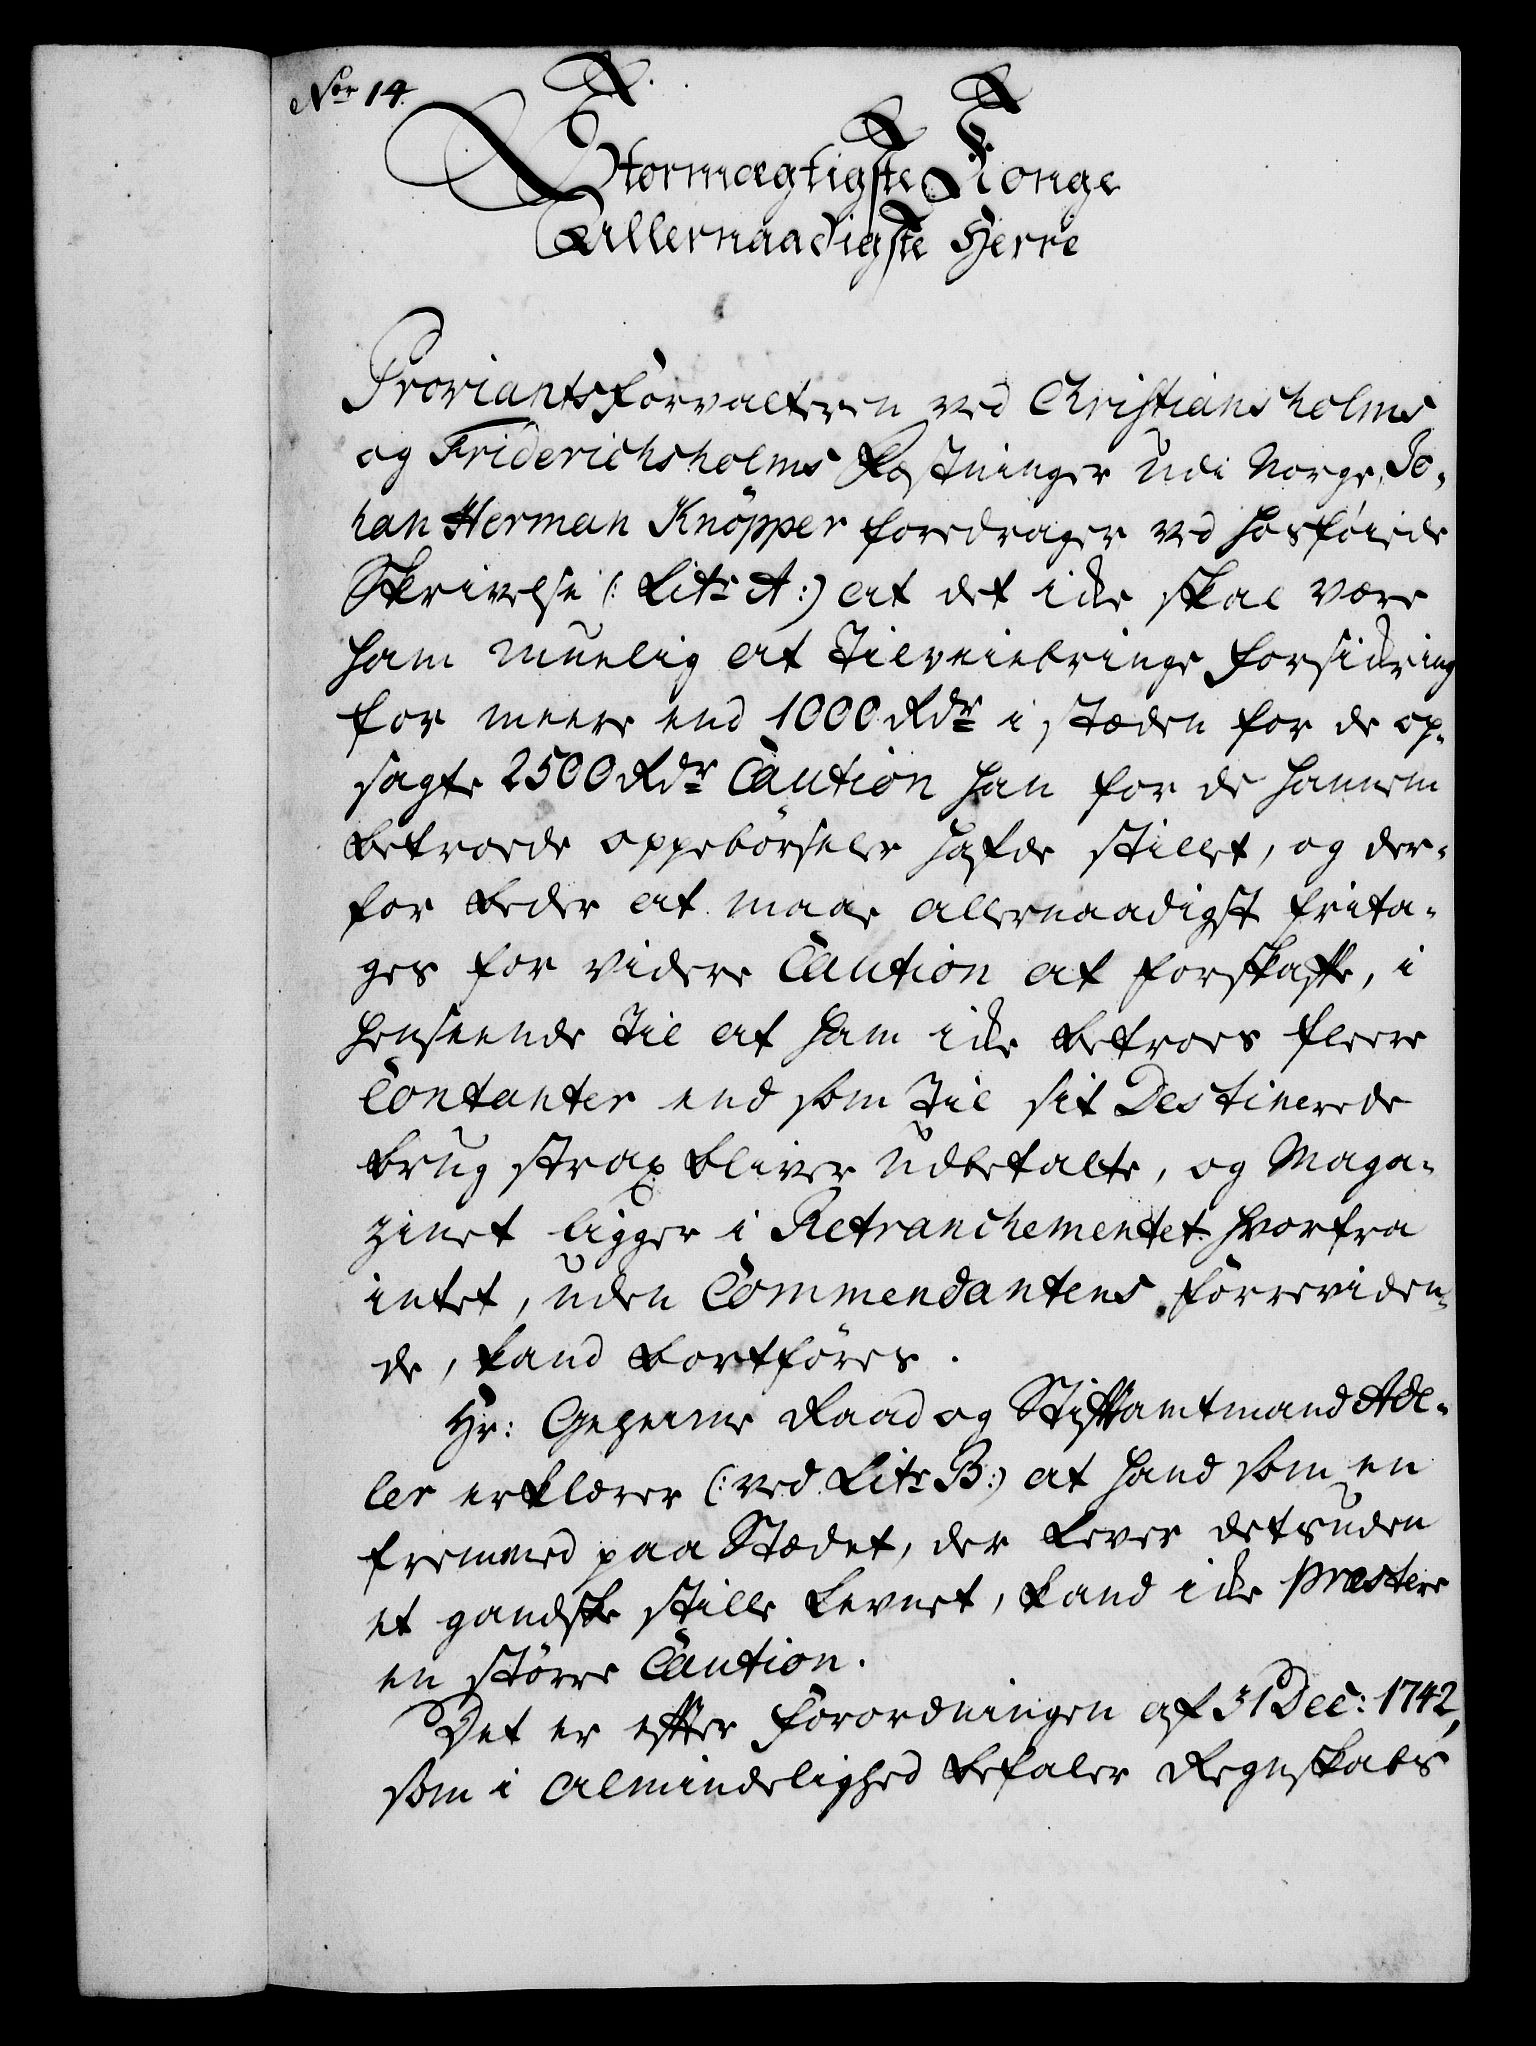 Nor 14.
Stormægtigste Konge
Allernaadigste Herre
Proviantsforvalteren ved Christiansholms
og Friderichsholms Fæstninger udi Norge, Jo-
han Herman Knöpper foredrager ved hosföiede
Skrivelse (: Litr A:) at det icke skal være
ham mueligt at tilveiebringe forsickring
for meere end 1000 Rdr i stæden for de op-
sagte 2500 Rdr Caution han for de hannem
betroede oppebörseler hafde stillet, og der-
for beder at maae allernaadigst frita-
ges for videre Caution at forskaffe, i
henseende til at ham icke betroes fleere
Contanter end som til sit Destinerede
brug strax bliver udbetalte, og Maga-
zinet ligger i Retranchementet hvorfra
intet, uden Commendantens forreviden-
de, kand bortföres.
Hr: Geheime Raad og Stiftamtmand Ade-
ler erklærer (: ved Litr B:) at hand som en
fremmed paa Stædet, der lever desuden
et gandske stille Levnet, kand icke præstere
en större Caution.
Det er efter Forordningen af 31 Dec: 1742,
som i Almindelighed befaler Regnskabs